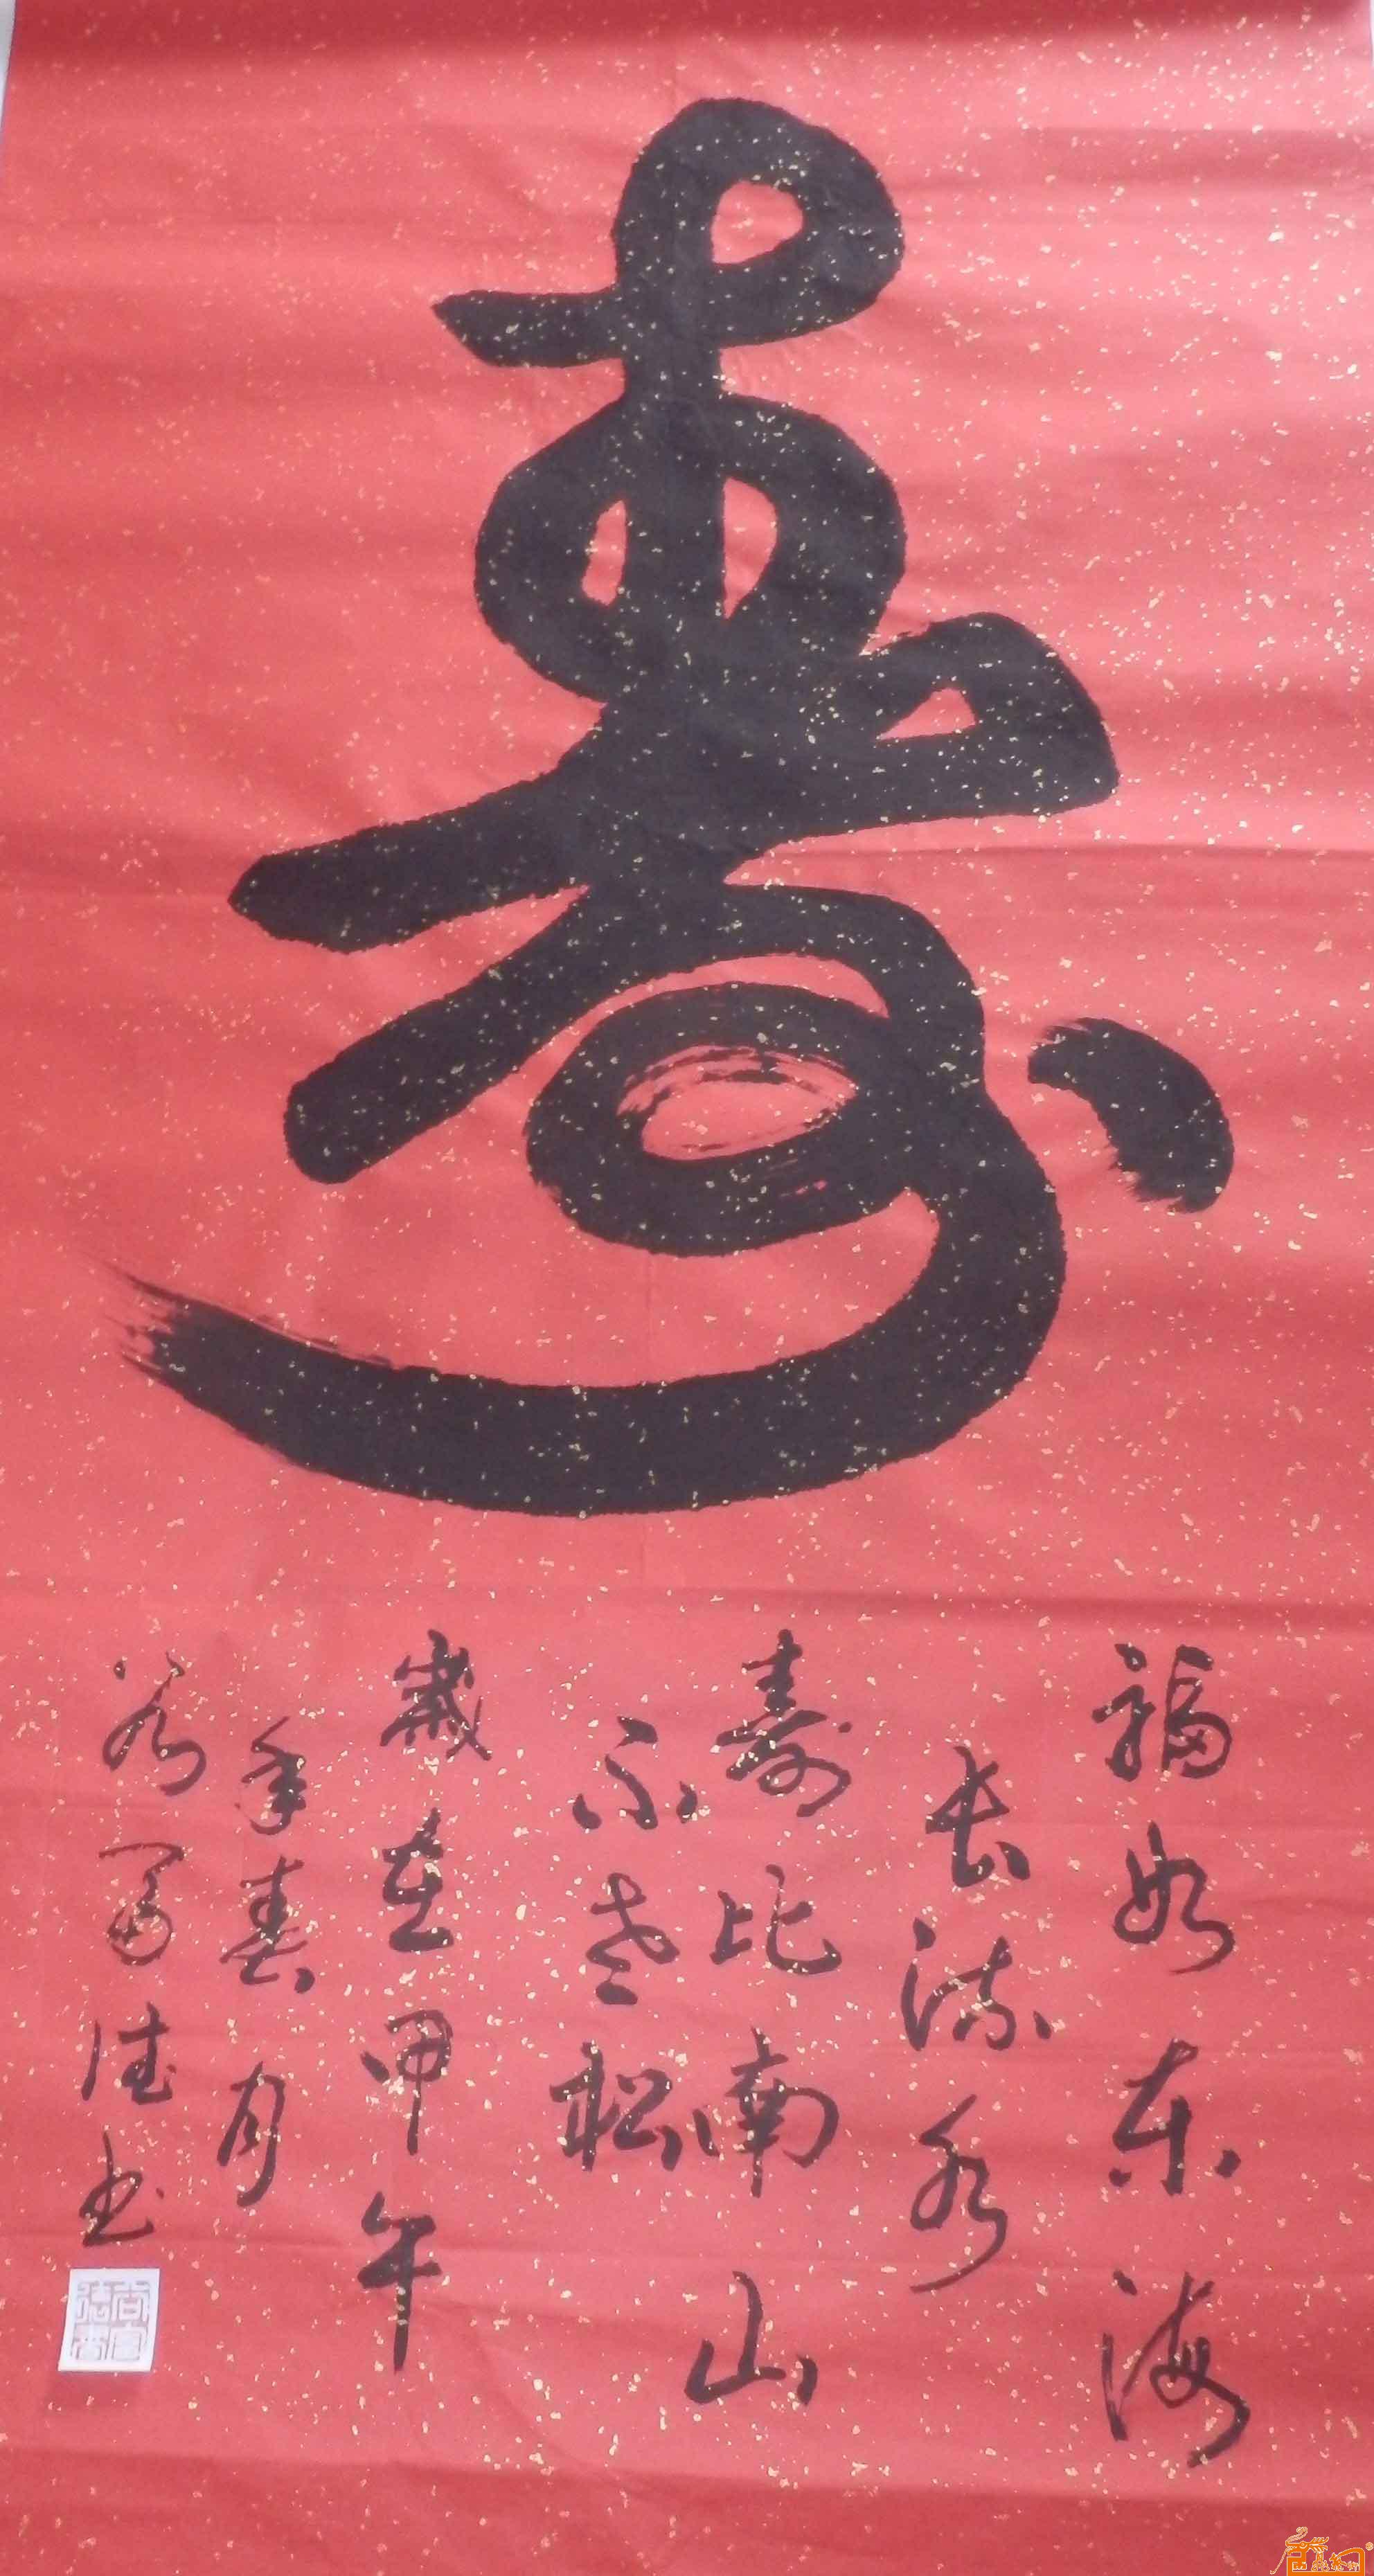 寿
福如东海
长流水
寿比南山
不老松
岁在甲午
年春月
富法书